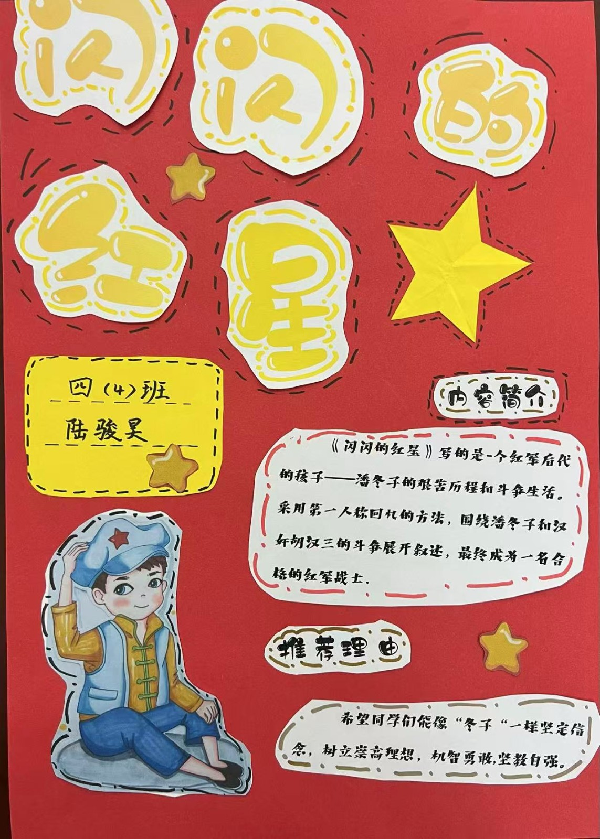 闪闪的
红星
四(4)班
陆骏昊
内容简介
《闪闪的红星》写的是一个红军后代
的孩子——潘冬子的艰苦历程和斗争生活。
采用第一人称回忆的方法，围绕潘冬子和汉
奸胡汉三的斗争展开叙述，最终成为一名合
格的红军战士.
推荐理由
希望同学们能像“冬子“一样坚定信
念，树立崇高理想，机智勇敢,坚毅自强。